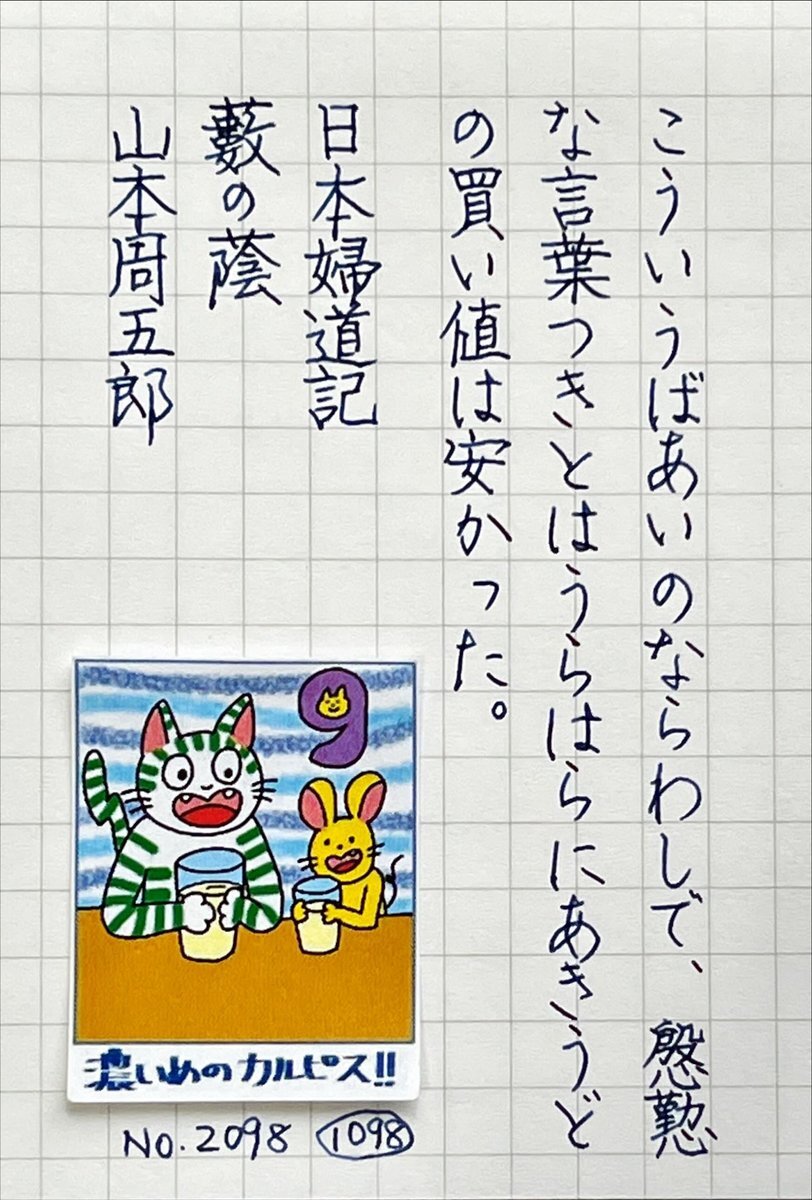 こういうばあいのならわしで、慇懃
な言葉つきとはうらはらにあきうど
の買い値は安かった。
日本婦道記
藪の蔭
山本周五郎
9
濃いめのカルピス!!
NO.2098 1098